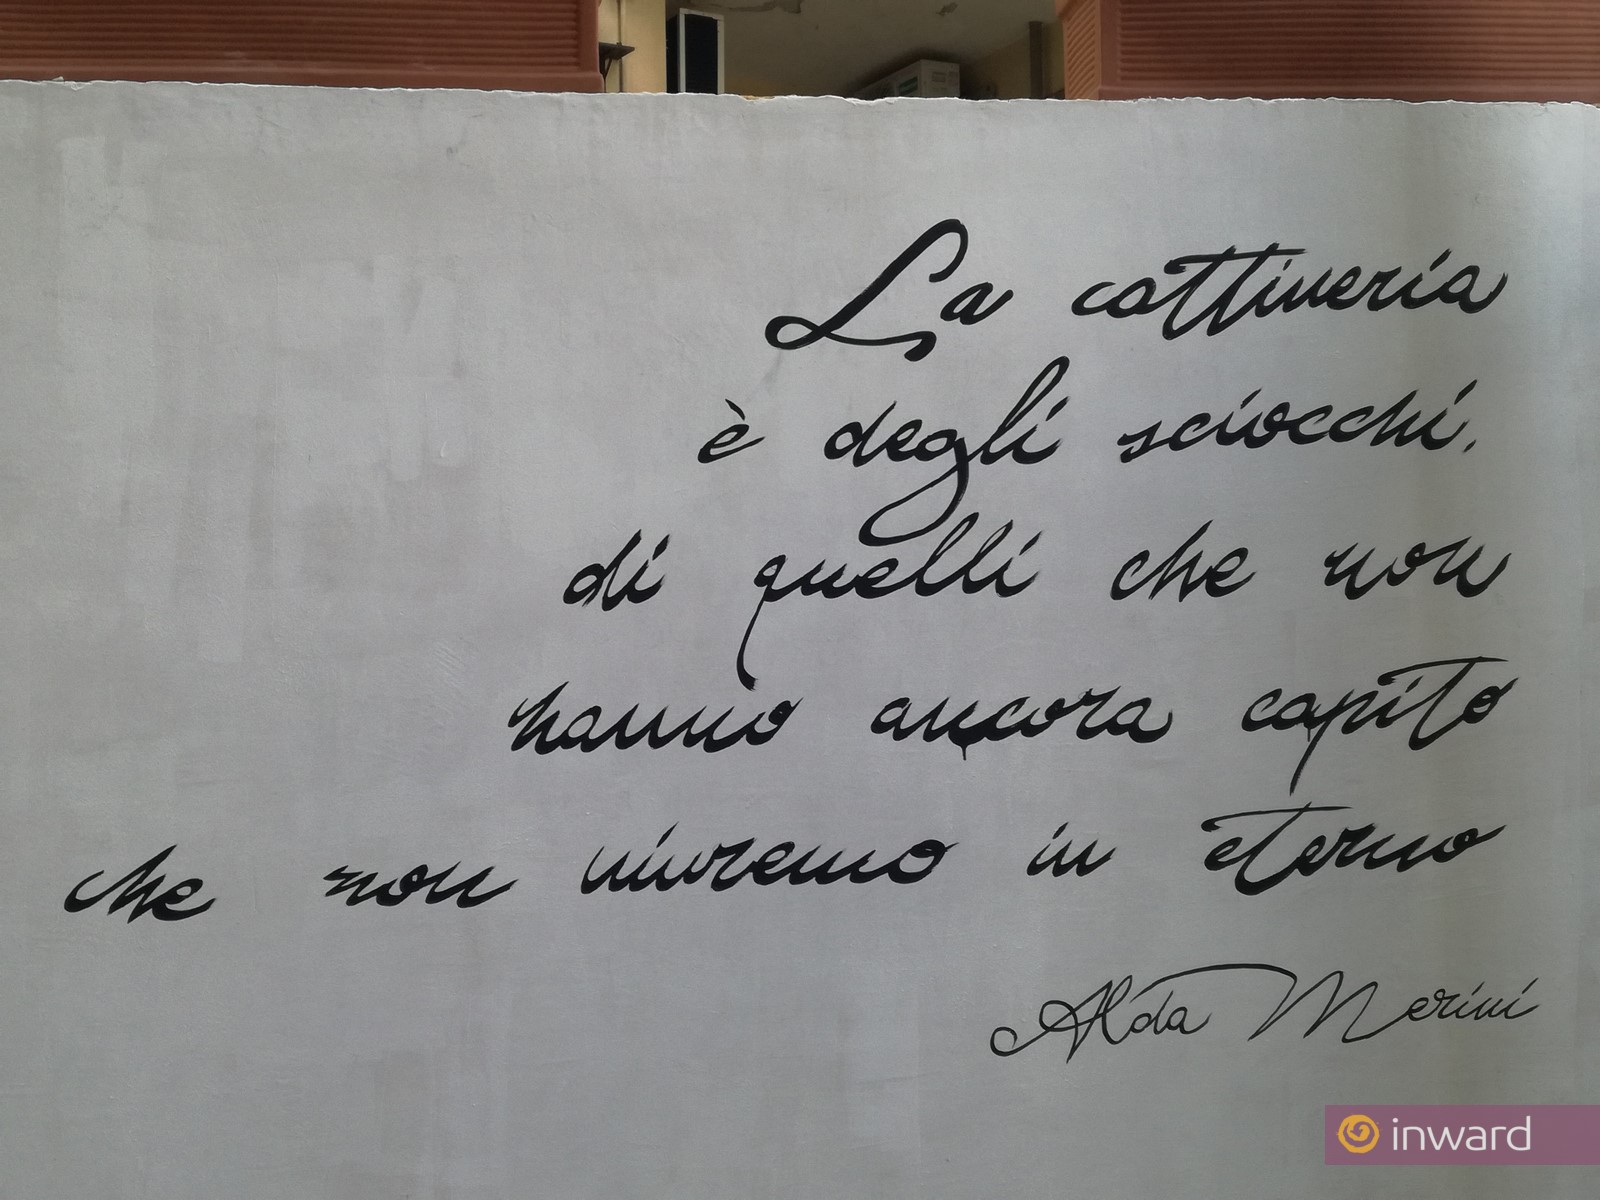 La cattiveria
è degli sciocchi,
di quelli che non
hanno ancora capito
che non vivremo in eterno
Alda Merini
inward